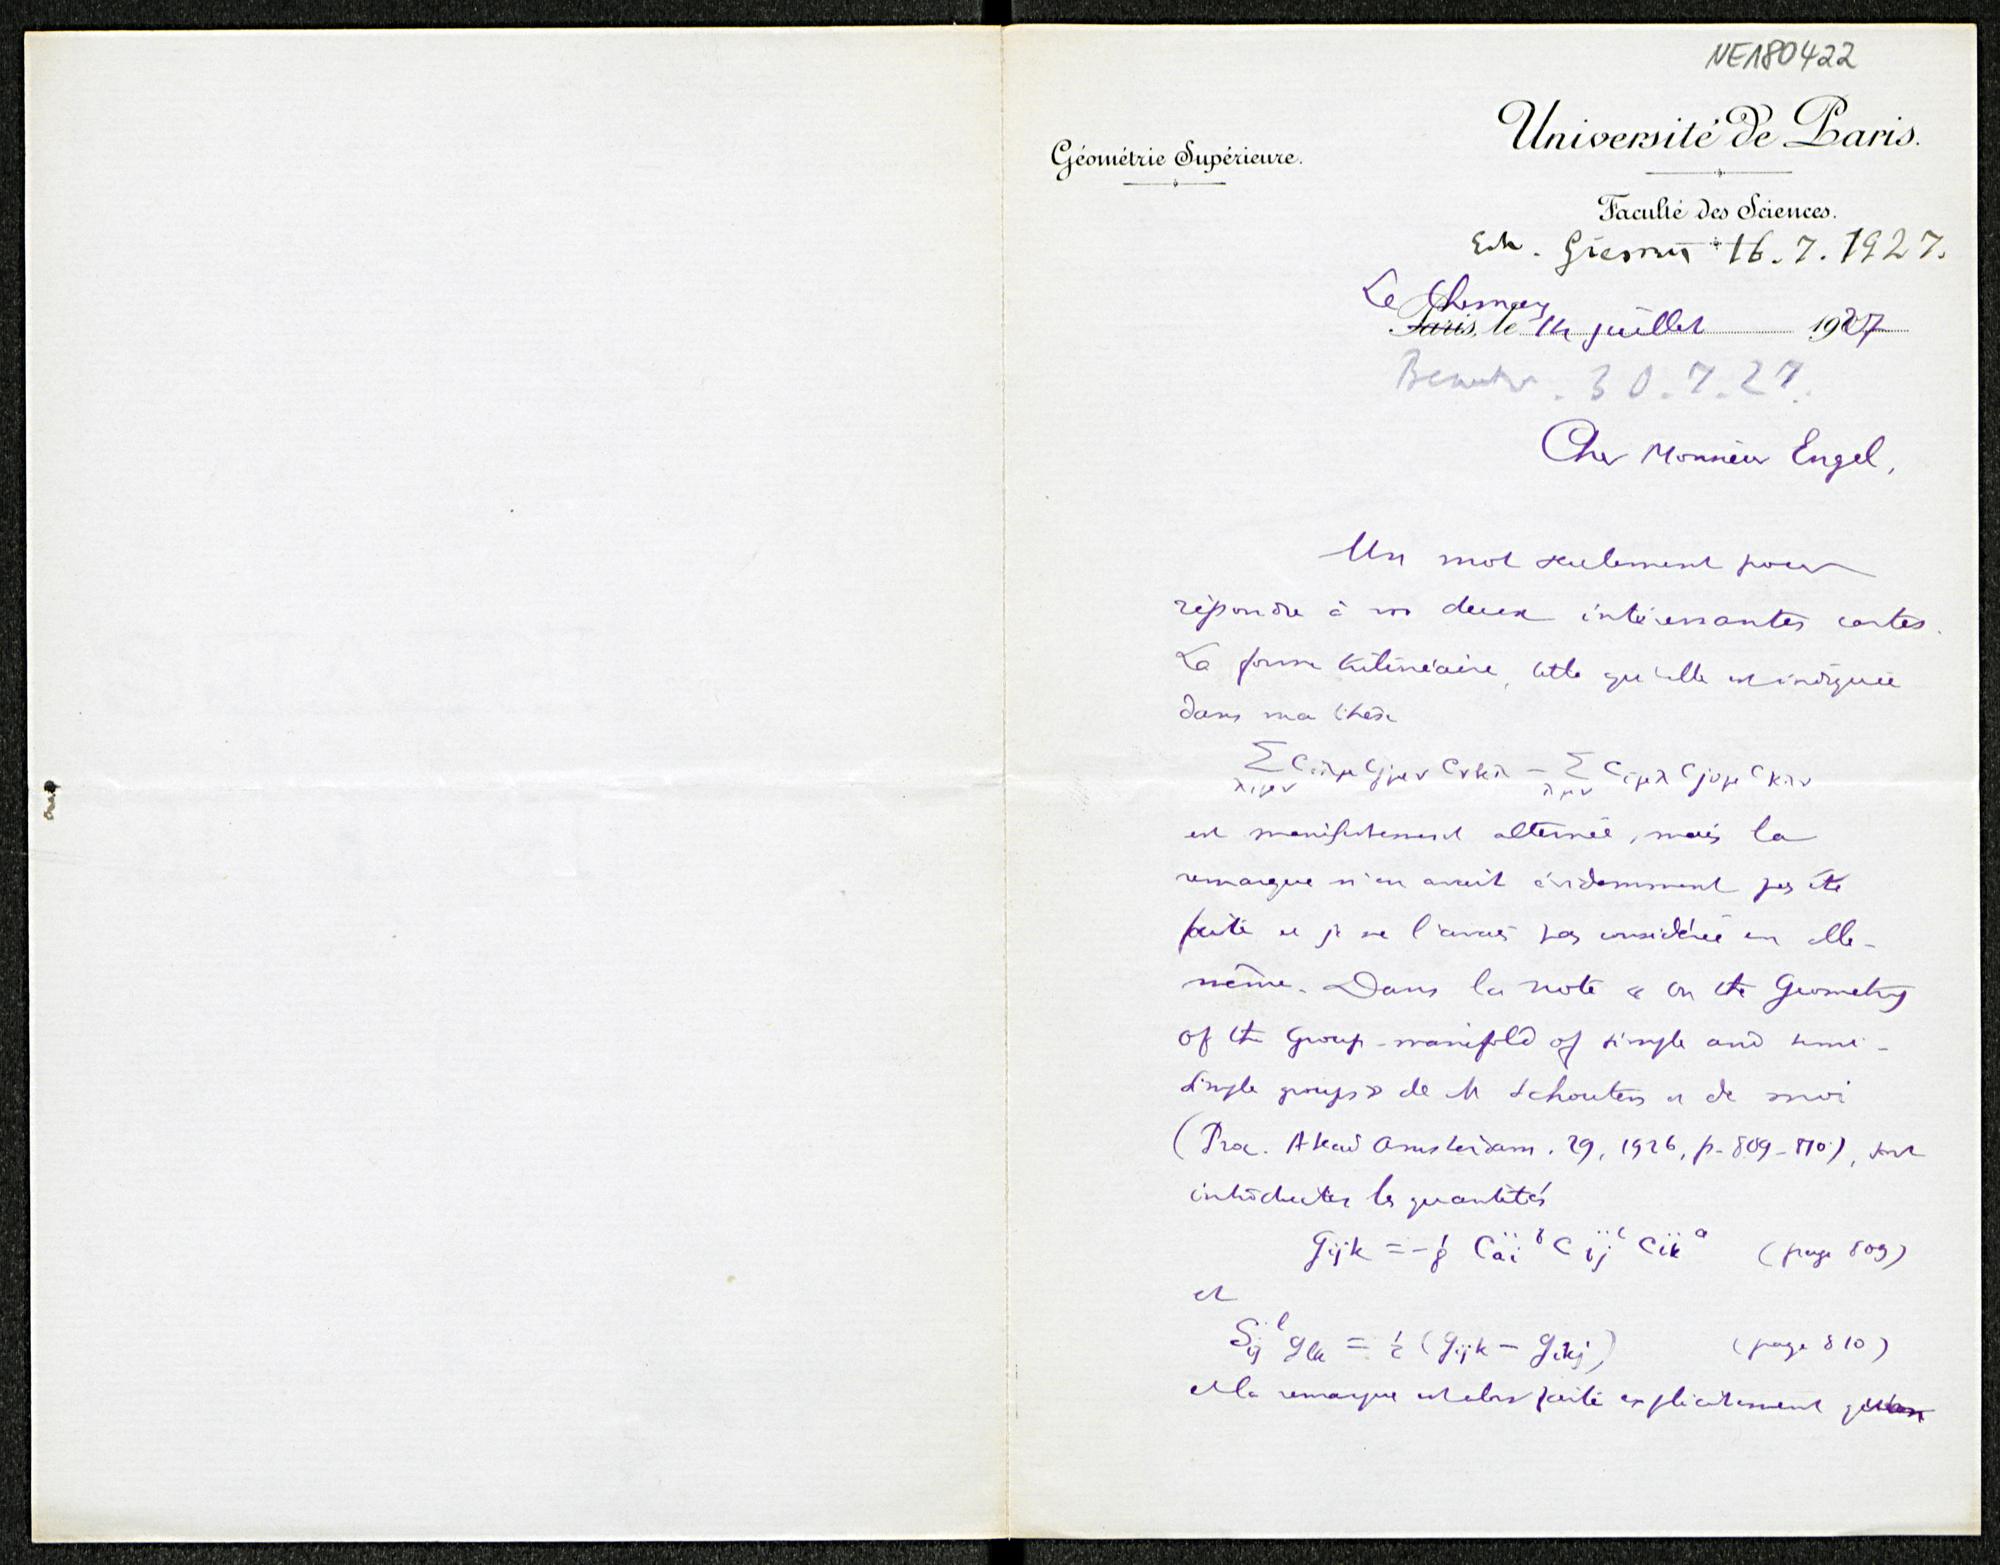 NE180422
Université de Paris.
Géométrie Supérieure.
Faculté des Sciences.
Erh. Giessen 16.7.1927.
Le Chesnay
Paris, le 14 juillet 1927
Beantw. 30.7.27.
Cher Monsieur Engel,
Un mot seulement pour
répondre à vos deux intéressantes cartes.
La forme trilinéaire, telle qu'elle est indiquée
dans ma thèse
∑ c_{iλμ} c_{jμν} c_{νkλ} – ∑ c_{iμλ} c_{jνμ} c_{kλν}
λ,μ,ν λμν
est manifestement alternée, mais la
remarque n'en avait évidemment pas été
faite et je ne l'avais pas considérée en elle-
même. Dans la note « On the Geometry
of the Group-manifold of simple and semi-
simple groups » de M Schouten et de moi
(Proc. Akad Amsterdam, 29, 1926, p. 809-810), sont
introduites les quantités
g_{ijk} = -1/8 c_{ai}^{b} c_{bj}^{c} c_{ck}^{a} (page 809)
et
S_{ij}^{l} g_{lk} = 1/2 (g_{ijk} – g_{ikj}) (page 810)
et la remarque est alors faite explicitement